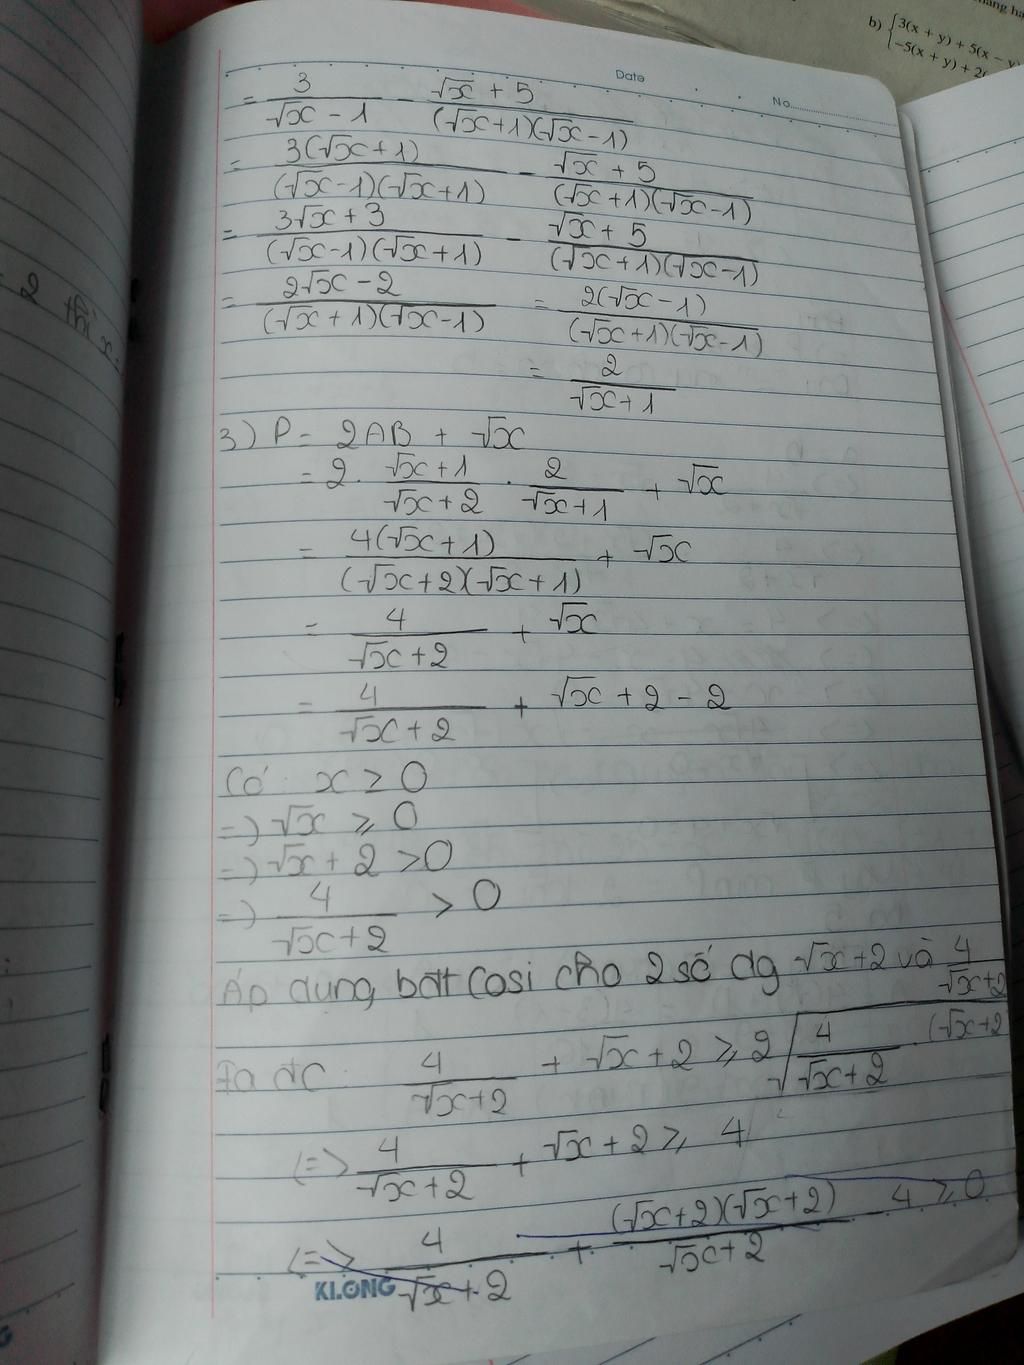 b) {3(x + y) + 5(x − y)
−5(x + y) + 2(
Date
No.
= 2 thì x =
= 3/(√x − 1) − (√x + 5)/((√x+1)(√x−1))
= 3(√x+1)/((√x−1)(√x+1)) − (√x + 5)/((√x+1)(√x−1))
= (3√x + 3)/((√x−1)(√x+1)) − (√x + 5)/((√x+1)(√x−1))
= (2√x − 2)/((√x+1)(√x−1)) = 2(√x−1)/((√x+1)(√x−1))
= 2/(√x+1)
3) P = 2AB + √x
= 2 . (√x+1)/(√x+2) . 2/(√x+1) + √x
= 4(√x+1)/((√x+2)(√x+1)) + √x
= 4/(√x+2) + √x
= 4/(√x+2) + √x + 2 − 2
Có x ≥ 0
=> √x ≥ 0
=> √x + 2 > 0
=> 4/(√x+2) > 0
Áp dụng bđt Cosi cho 2 số dg √x+2 và 4/(√x+2)
Ta đc 4/(√x+2) + √x + 2 ≥ 2√(4/(√x+2) . (√x+2
<=> 4/(√x+2) + √x + 2 ≥ 4
<=> 4/(√x+2) + (√x+2)(√x+2)/(√x+2) − 4 ≥ 0
KLONG